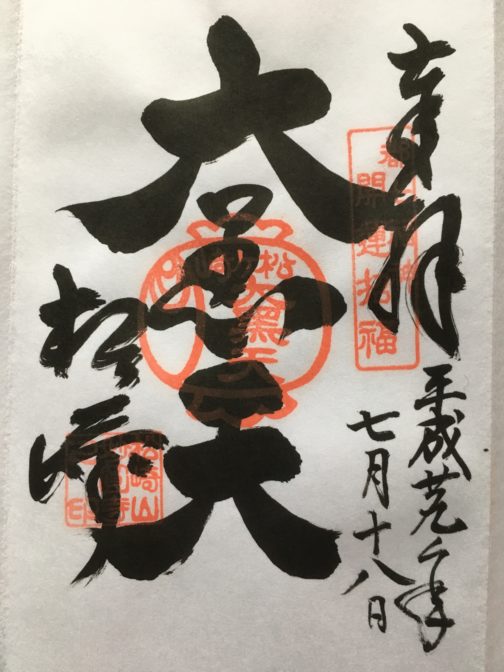 奉拝
平成廿九年
七月十八日
開運招福
大黒天
松ヶ崎
松崎山